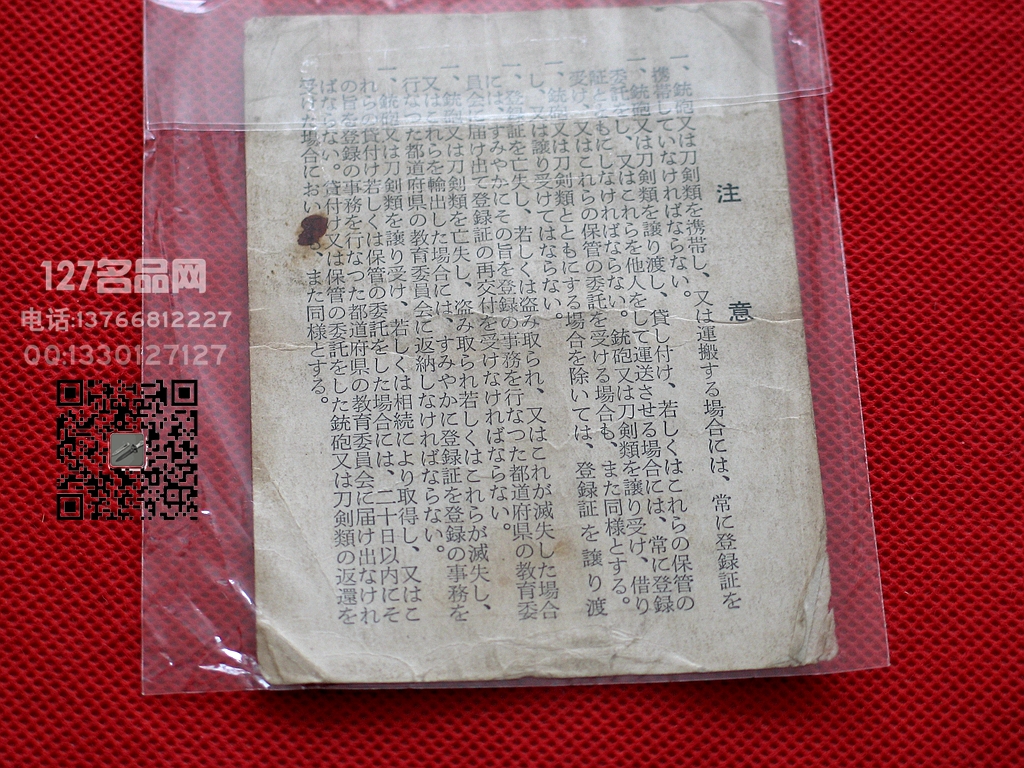 注意
一、銃砲又は刀剣類を携帯し、又は運搬する場合には、常に登録証を
携帯していなければならない。
一、銃砲又は刀剣類を譲り渡し、貸し付け、若しくはこれらの保管の
委託をし、又はこれらを他人をして運送させる場合には、常に登録
証とともにしなければならない。銃砲又は刀剣類を譲り受け、借り
受け、又はこれらの保管の委託を受ける場合も、また同様とする。
一、銃砲又は刀剣類とともにする場合を除いては、登録証を譲り渡
し、又は譲り受けてはならない。
一、登録証を亡失し、若しくは盗み取られ、又はこれが滅失した場合
には、すみやかにその旨を登録の事務を行なつた都道府県の教育委
員会に届け出て登録証の再交付を受けなければならない。
一、銃砲又は刀剣類を亡失し、盗み取られ若しくはこれらが滅失し、
又はこれらを輸出した場合には、すみやかに登録証を登録の事務を
行なつた都道府県の教育委員会に返納しなければならない。
一、銃砲又は刀剣類を譲り受け、若しくは相続により取得し、又はこ
れらの貸付け若しくは保管の委託をした場合には、二十日以内にそ
の旨を登録の事務を行なつた都道府県の教育委員会に届け出なけれ
ばならない。貸付け又は保管の委託をした銃砲又は刀剣類の返還を
受けた場合においても、また同様とする。
127名品网
电话:13766812227
QQ:1330127127